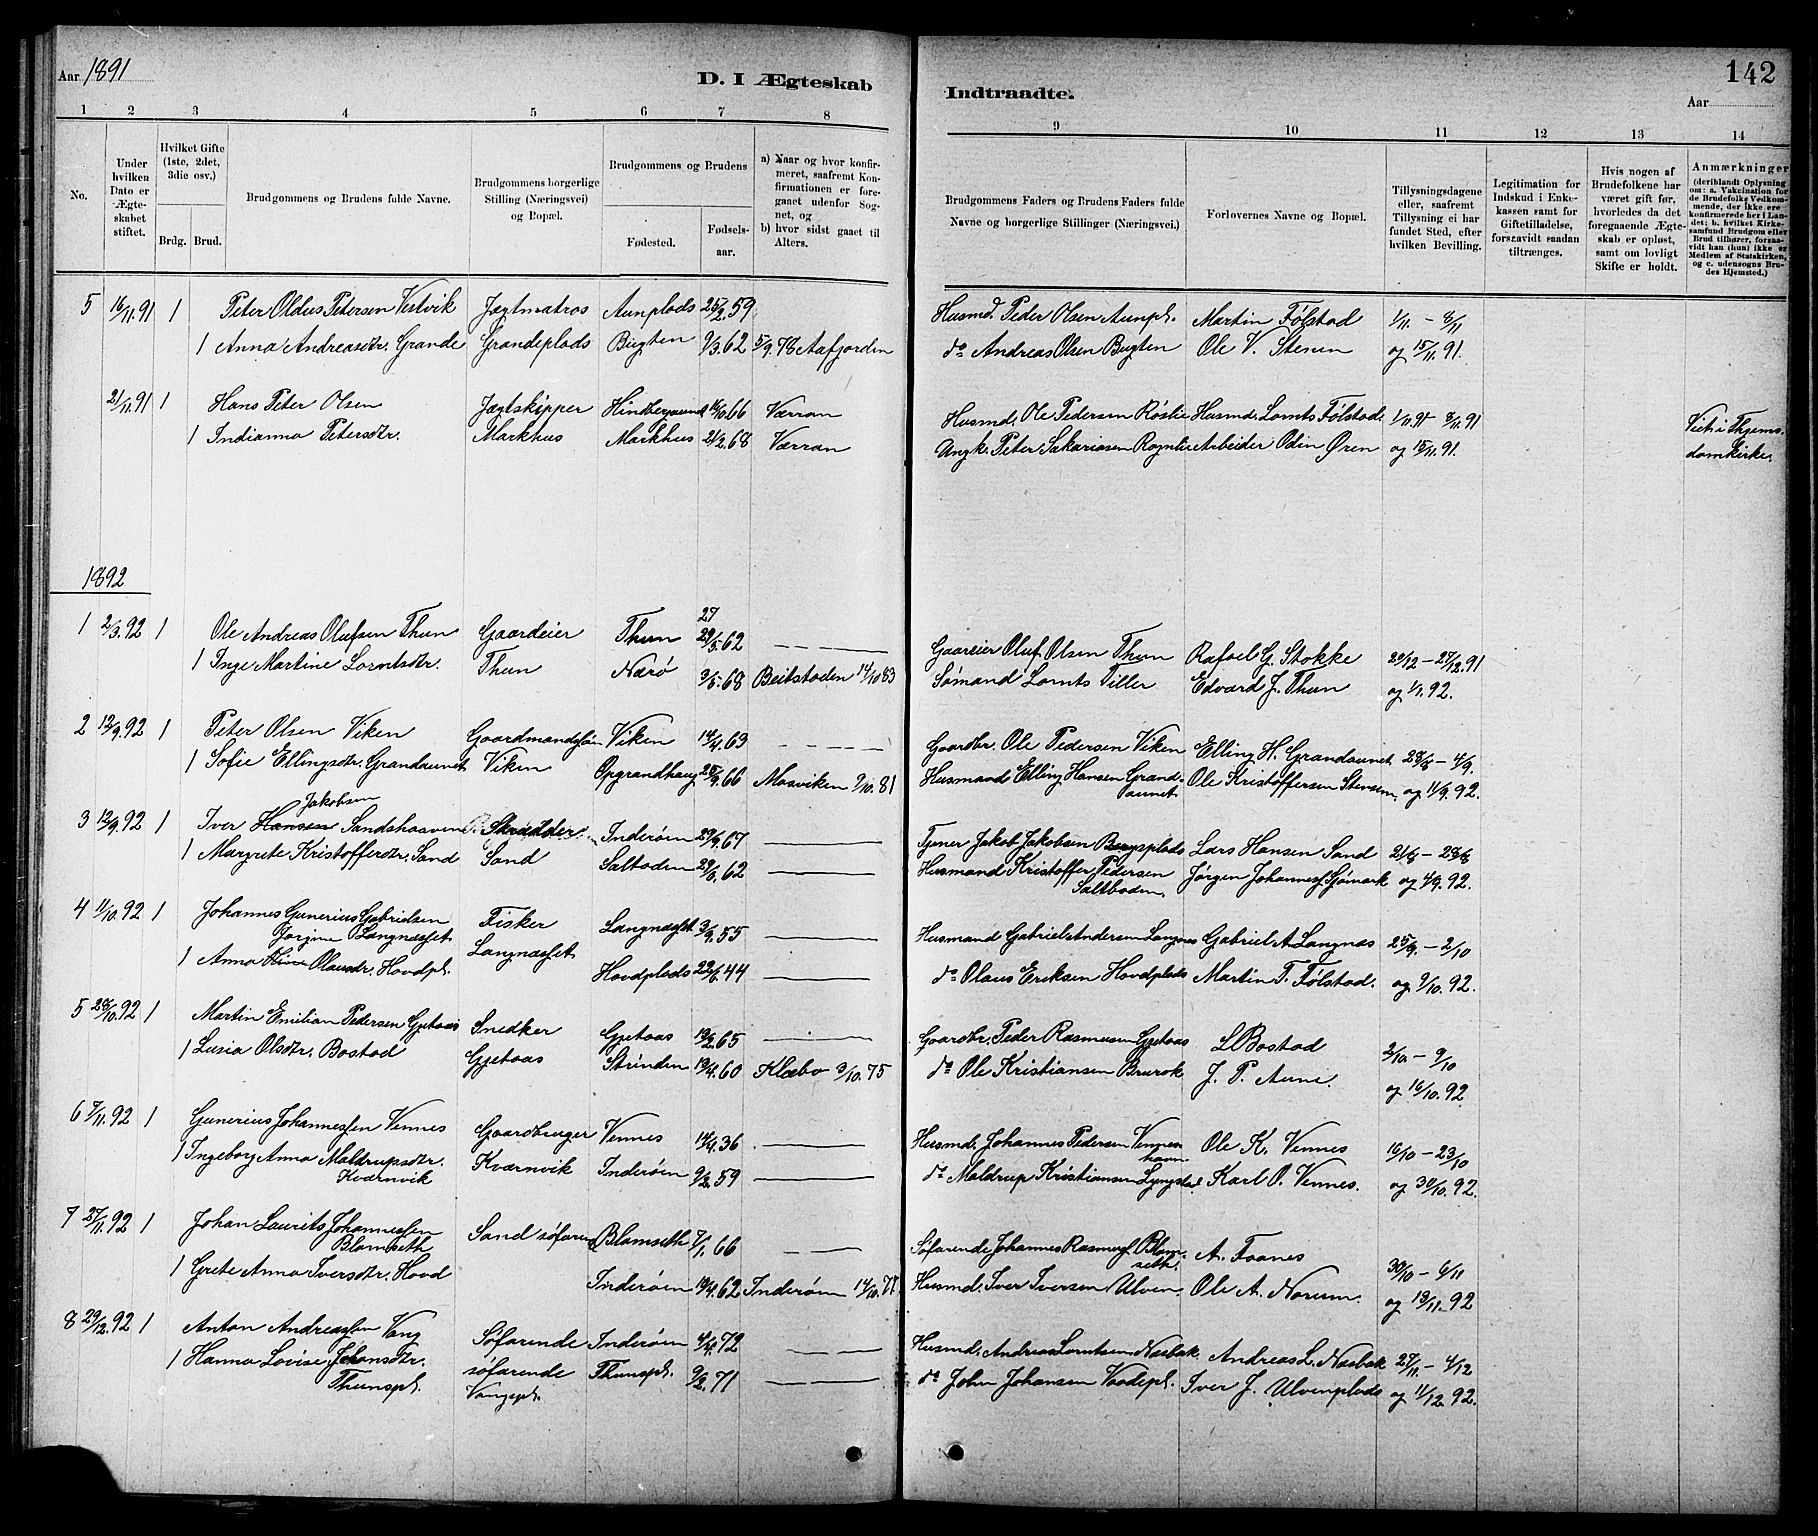 Aar 1891
D. I Ægteskab
Indtraadte.
142
Aar
1 2 3 4 5 6 7 8 9 10 11 12 13 14
No.
Under hvilken Dato er Ægteskabet stiftet.
Hvilket Gifte (1ste, 2det, 3die osv.)
Brdg. Brud.
Brudgommens og Brudens fulde Navne.
Brudgommens borgerlige Stilling (Næringsvei) og Bopæl.
Brudgommens og Brudens
Fødested.
Fødselsaar.
a) Naar og hvor konfirmeret, saafremt Konfirmationen er foregaaet udenfor Sognet, og
b) hvor sidst gaaet til Alters.
Brudgommens Faders og Brudens Faders fulde Navne og borgerlige Stillinger (Næringsvei.)
Forlovernes Navne og Bopæl.
Tillysningsdagene eller, saafremt Tillysning ei har fundet Sted, efter hvilken Bevilling.
Legitimation for Indskud i Enkekassen samt for Giftetilladelse, forsaavidt saadan tiltrænges.
Hvis nogen af Brudefolkene har været gift før, hvorledes da det foregaaende Ægteskab er opløst, samt om lovligt Skifte er holdt.
Anmærkninger (deriblandt Oplysning om: a. Vakcination for de Brudefolks Vedkommende, der ikke ere konfirmerede her i Landet; b. hvilket Kirkesamfund Brudgom eller Brud tilhører, forsaavidt han (hun) ikke er Medlem af Statskirken, og c. udensogns Brudes Hjemsted.)
5 16/11.91 1 Peter Oldus Petersen Vestvik Jægtmatros Aunplads 25/2.59 Husmd. Peder Olsen Aunpl. Martin Følstad 1/11 - 8/11
1 Anna Andreasdtr. Grande Grandeplads Bugten 9/3.62 5/9.78 Aafjorden do Andreas Olsen Bugten Ole V. Stenen og 15/11.91.
21/11.91 1 Hans Peter Olsen Jægtskipper 66 Værran Husmd. Ole Pedersen Røslie Husmd. Lornts Følstad 1/11.91 - 8/11.91 Viet i Thjems
1 Indianna Petersdtr. Markhus Markhus 21/2.68 Værran Peter Sakariasen Arbeider Odin Øren og 15/11.91. domkirke.
1892
1 2/3.92 1 Ole Andreas Olufsen Thun Gaardeier Thun 27 29/5.62 Gaardeier Oluf Olsen Thun Rafael G. Stokke 27/12.91
1 Inge Martine Lorntsdtr. Thun Nærø 3/5.68 Beitstaden 14/10 83 Sømand Lornts Tiller Edvard J. Thun og 1/1.92.
2 12/9.92 1 Peter Olsen Viken Gaardmandssøn Viken 14/4.63 Gaardbr. Ole Pedersen Viken Elling H. Grandaunet 28/8 - 4/9.
1 Sofie Ellingsdtr. Grandaunet Viken Opgrandhaug 66 Mosviken 9/10.81 Husmand Elling Hansen Grandaunet Ole Kristoffersen Stensem og 11/9.92.
3 12/9.92 1 Iver Hansen Jakobsen Sandshaaven Skrædder Inderøen 67 Tjener Jakob Jakobsen Bergsplads Lars Hansen Sand 21/8 - 28/8
1 Margrete Kristoffersdtr. Sand Sand Saltboden 62 Husmand Kristoffer Pedersen Saltboden. Jørgen Johannes. Sjømark og 4/9.92.
4 11/10.92 1 Johannes Gunerius Gabrielsen Langnæsset Fisker Langnæsset 3/9.55 Husmand Gabriel Andersen Langnes Gabriel A. Langnæs 25/9. - 2/10
1 Anna Jorgine Olausdtr. Hovdpl. Langnæsset Hovdplads 44 do Olaus Eriksen Hovdplads Martin T. Følstad. og 9/10.92.
5 28/10.92 1 Martin Emilian Pedersen Gjetaas Snedker Gjetaas 65 Gaardbr. Peder Rasmussen Gjetaas L Bostad 2/10 - 9/10
1 Lusia Olsdtr. Bostad Gjetaas Strinden 60 Klæbo 3/10.75 do Ole Kristiansen Brurok J. P. Aune. og 16/10.92.
6 7/11.92 1 Gunerius Johannessen Vennes Gaardbruger Vennes 14/4.36 Husmd. Johannes Pedersen Vennes havn Ole K. Vennes 16/10 - 23/10
1 Ingeborg Anna Maldrupsdtr. Kvarnvik Kvarnvik Inderøen 9/2.59 do Maldrup Kristiansen Lyngstad Karl O. Vennes. og 30/10.92.
7 27/11.92 1 Johan Laurits Johannessen Blomseth Sand søfarend Blomseth 7/1.66 Søfarende Johannes Rasmuss. Blomseth. A. Faanes 30/10 - 6/11
1 Grete Anna Iversdtr. Hovd Inderøen 62 Inderøen 14/10.77 Husmd. Iver Iversen Ulven Ole A. Norum. og 13/11.92
8 29/12.92 1 Anton Andreassen Vang Søfarende Inderøen 4/4.72 Husmd. Andreas Lorntsen Næsbak Andreas L. Næsbak 27/11 - 4/12
1 Hanna Lovise Johansdtr. Thunspl. søfarende Vangspl. Thunspl. 9/2.71 do John Johansen Vaadepl. Iver J. Ulvenplads og 11/12.92.